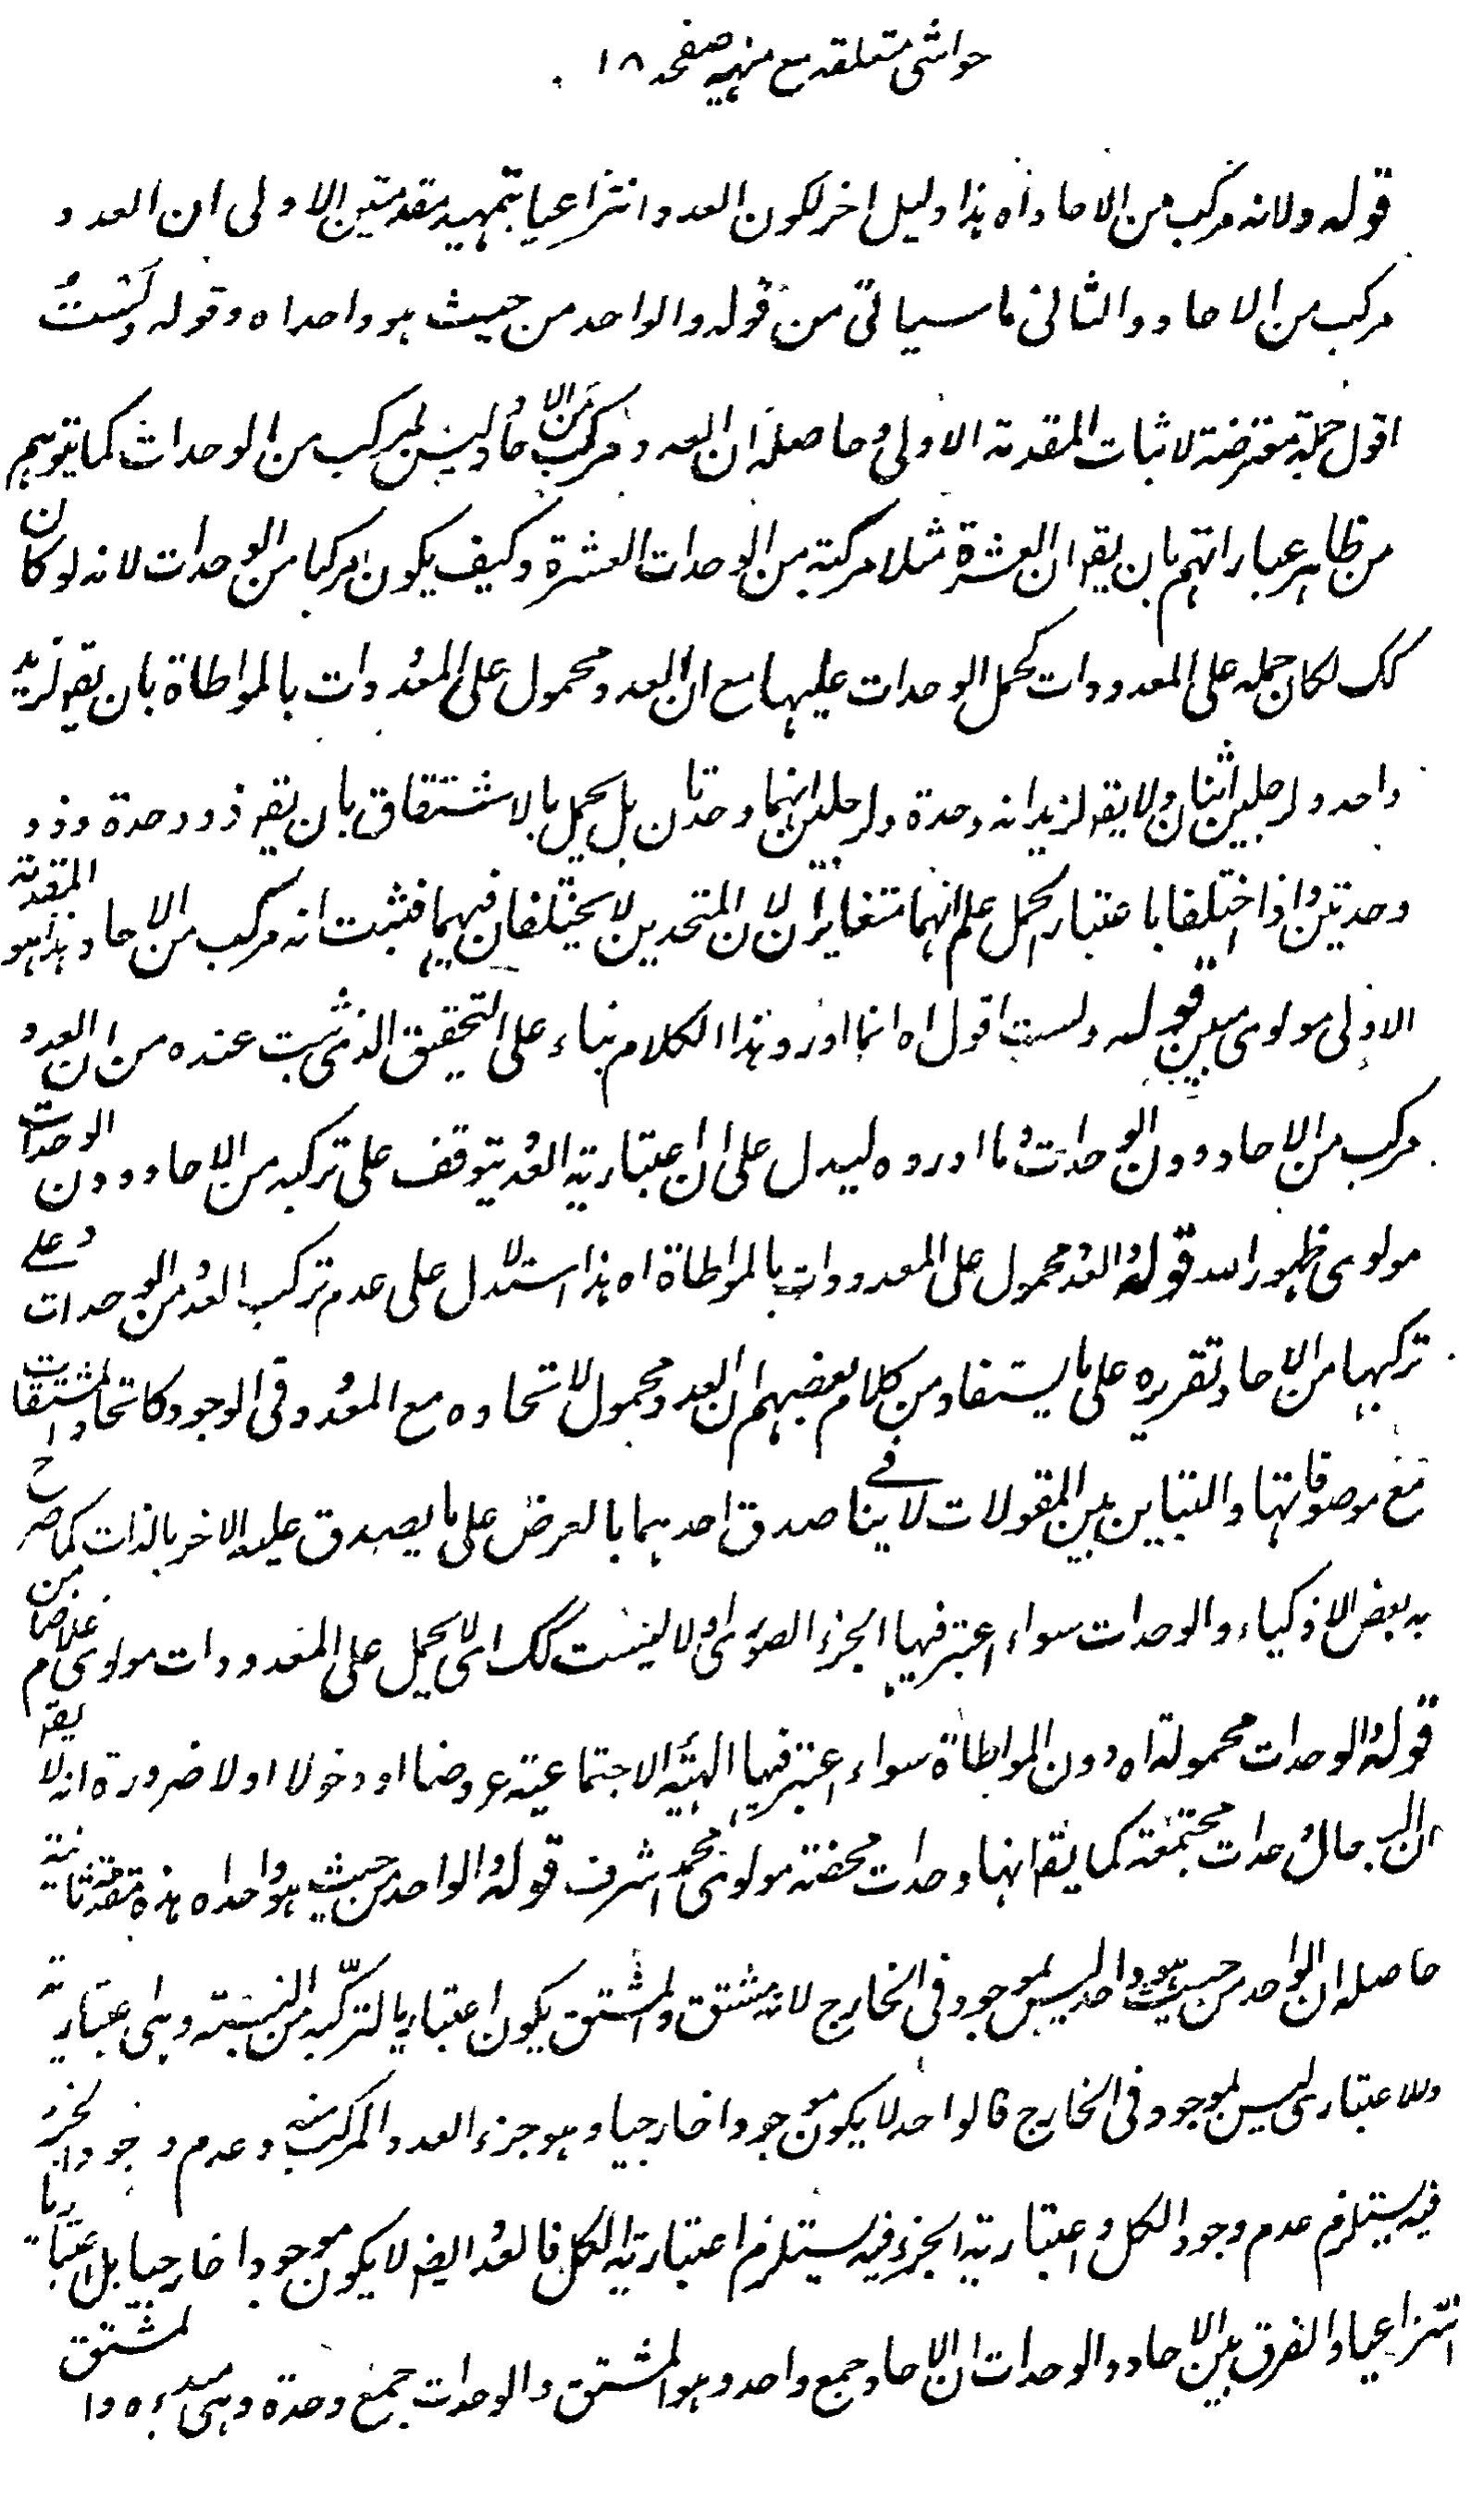 حواشی متعلقه مع منهیه صفحه ۱۸
قوله ولانه مرکب من الاحاد اه هذا دلیل اخر لکون العدد انتزاعیا بتمهید مقدمتین الاولی ان العدد
مرکب من الاحاد والثانی ما سیاتی من قوله والواحد من حیث هو واحد اه وقوله ولست
اقول جملة معترضة لاثبات المقدمة الاولی وحاصله ان العدد مرکب من الاحاد ولیس بمرکب من الوحدات کما یتوهم
من ظاهر عباراتهم بان یقو ان العشرة مثلا مرکبة من الوحدات العشرة وکیف یکون مرکبا من الوحدات لانه لو کان
کک لکان حمله علی المعدودات کحمل الوحدات علیها مع ان العدد محمول علی المعدودات بالمواطاة بان یقو لزید
واحد ولرجلین اثنان ولا یقو لزید انه وحدة ولرجلین انهما وحدتان بل یحمل بالاشتقاق بان یقو ذو وحدة وذو
وحدتین واذا اختلفا باعتبار الحمل علم انهما متغایران لان المتحدین لا یختلفان فیهما فثبت انه مرکب من الاحاد وهذا هو المقدمة
الاولی مولوی مبین قوله ولست اقول اه انما اورد هذا الکلام بناء علی التحقیق الذی ثبت عنده من ان العدد
مرکب من الاحاد دون الوحدات وما اورده لیدل علی ان اعتباریة العدد یتوقف علی ترکبه من الاحاد دون الوحدات
مولوی ظهور الله قوله العدد محمول علی المعدودات بالمواطاة اه هذا استدلال علی عدم ترکب العدد من الوحدات وعلی
ترکبها من الاحاد وتقریره علی ما یستفاد من کلام بعضهم ان العدد محمول لاتحاده مع المعدود فی الوجود کاتحاد المشتقات
مع موصوفاتها والتباین بین المقولات لا ینافی صدق احدهما بالعرض علی ما یصدق علیه الاخر بالذات کما صرح
به بعض الاذکیاء والوحدات سواء اعتبر فیها الجزء الصوری او لا لیست کک ای لا یحمل علی المعدودات مولوی
قوله الوحدات محمولة اه دون المواطاة سواء اعتبر فیها الهیئة الاجتماعیة عروضا او دخولا او لا ضرورة انه لا یقو
ان الرجال وحدات مجتمعة کما یقو انها وحدات محضة مولوی محمد اشرف قوله الواحد من حیث هو واحد اه هذه مقدمة ثانیة
حاصله ان الواحد من حیث هو واحد لیس بموجود فی الخارج لانه مشتق والمشتق یکون اعتباریا لترکبه من النسبة وهی اعتباریة
والاعتباری لیس بموجود فی الخارج فالواحد لا یکون موجودا خارجیا وهو جزء العدد والمرکب منه وعدم وجود الجزء
فیه یستلزم عدم وجود الکل واعتباریة الجزء فیه یستلزم اعتباریة الکل فالعدد ایضا لا یکون موجودا خارجیا بل اعتباریا
انتزاعیا والفرق بین الاحاد والوحدات ان الاحاد جمع واحد وهو المشتق والوحدات جمع وحدة وهی مبدءه والمشتق